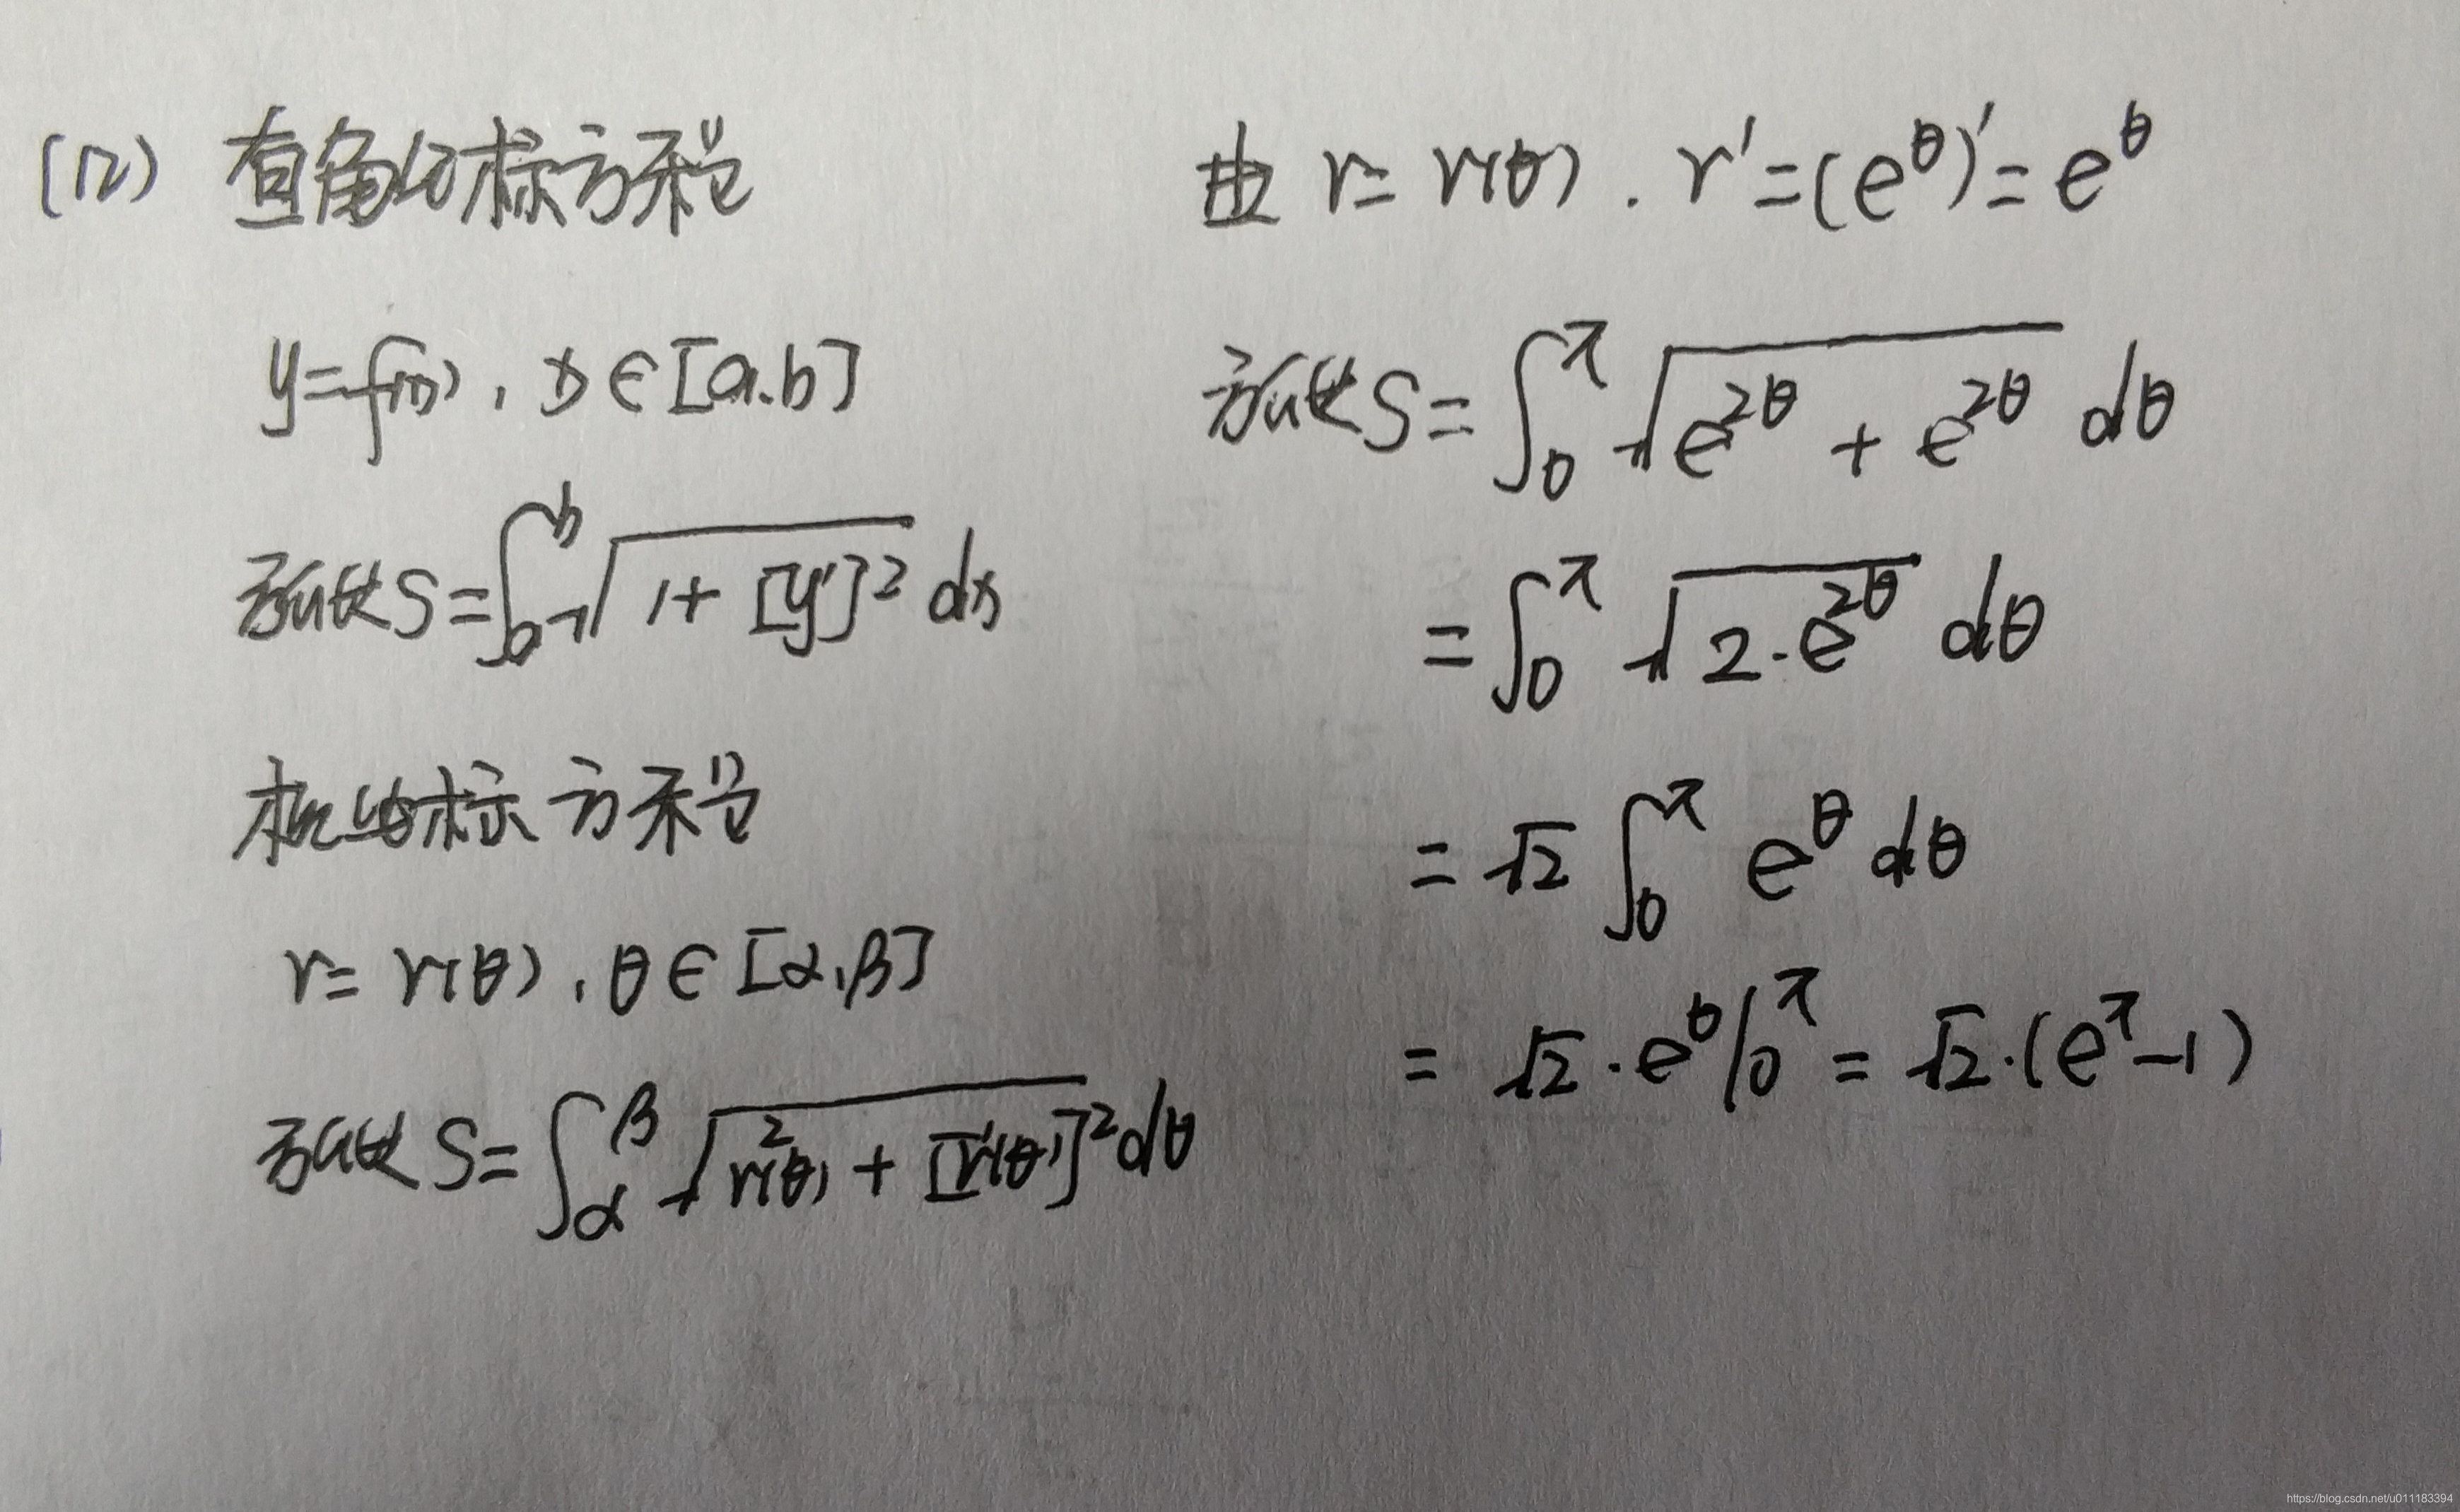 (12) 直角坐标方程
y=f(x), x∈[a.b]
弧长S=∫_a^b √(1+[y']²) dx
极坐标方程
r=r(θ), θ∈[α,β]
弧长 S=∫_α^β √(r²(θ)+[r'(θ)]²) dθ
由 r=r(θ). r'=(e^θ)'=e^θ
弧长S=∫_0^π √(e^{2θ}+e^{2θ}) dθ
=∫_0^π √(2·e^{2θ}) dθ
=√2 ∫_0^π e^θ dθ
=√2·e^θ|_0^π=√2·(e^π-1)
https://blog.csdn.net/u011183394